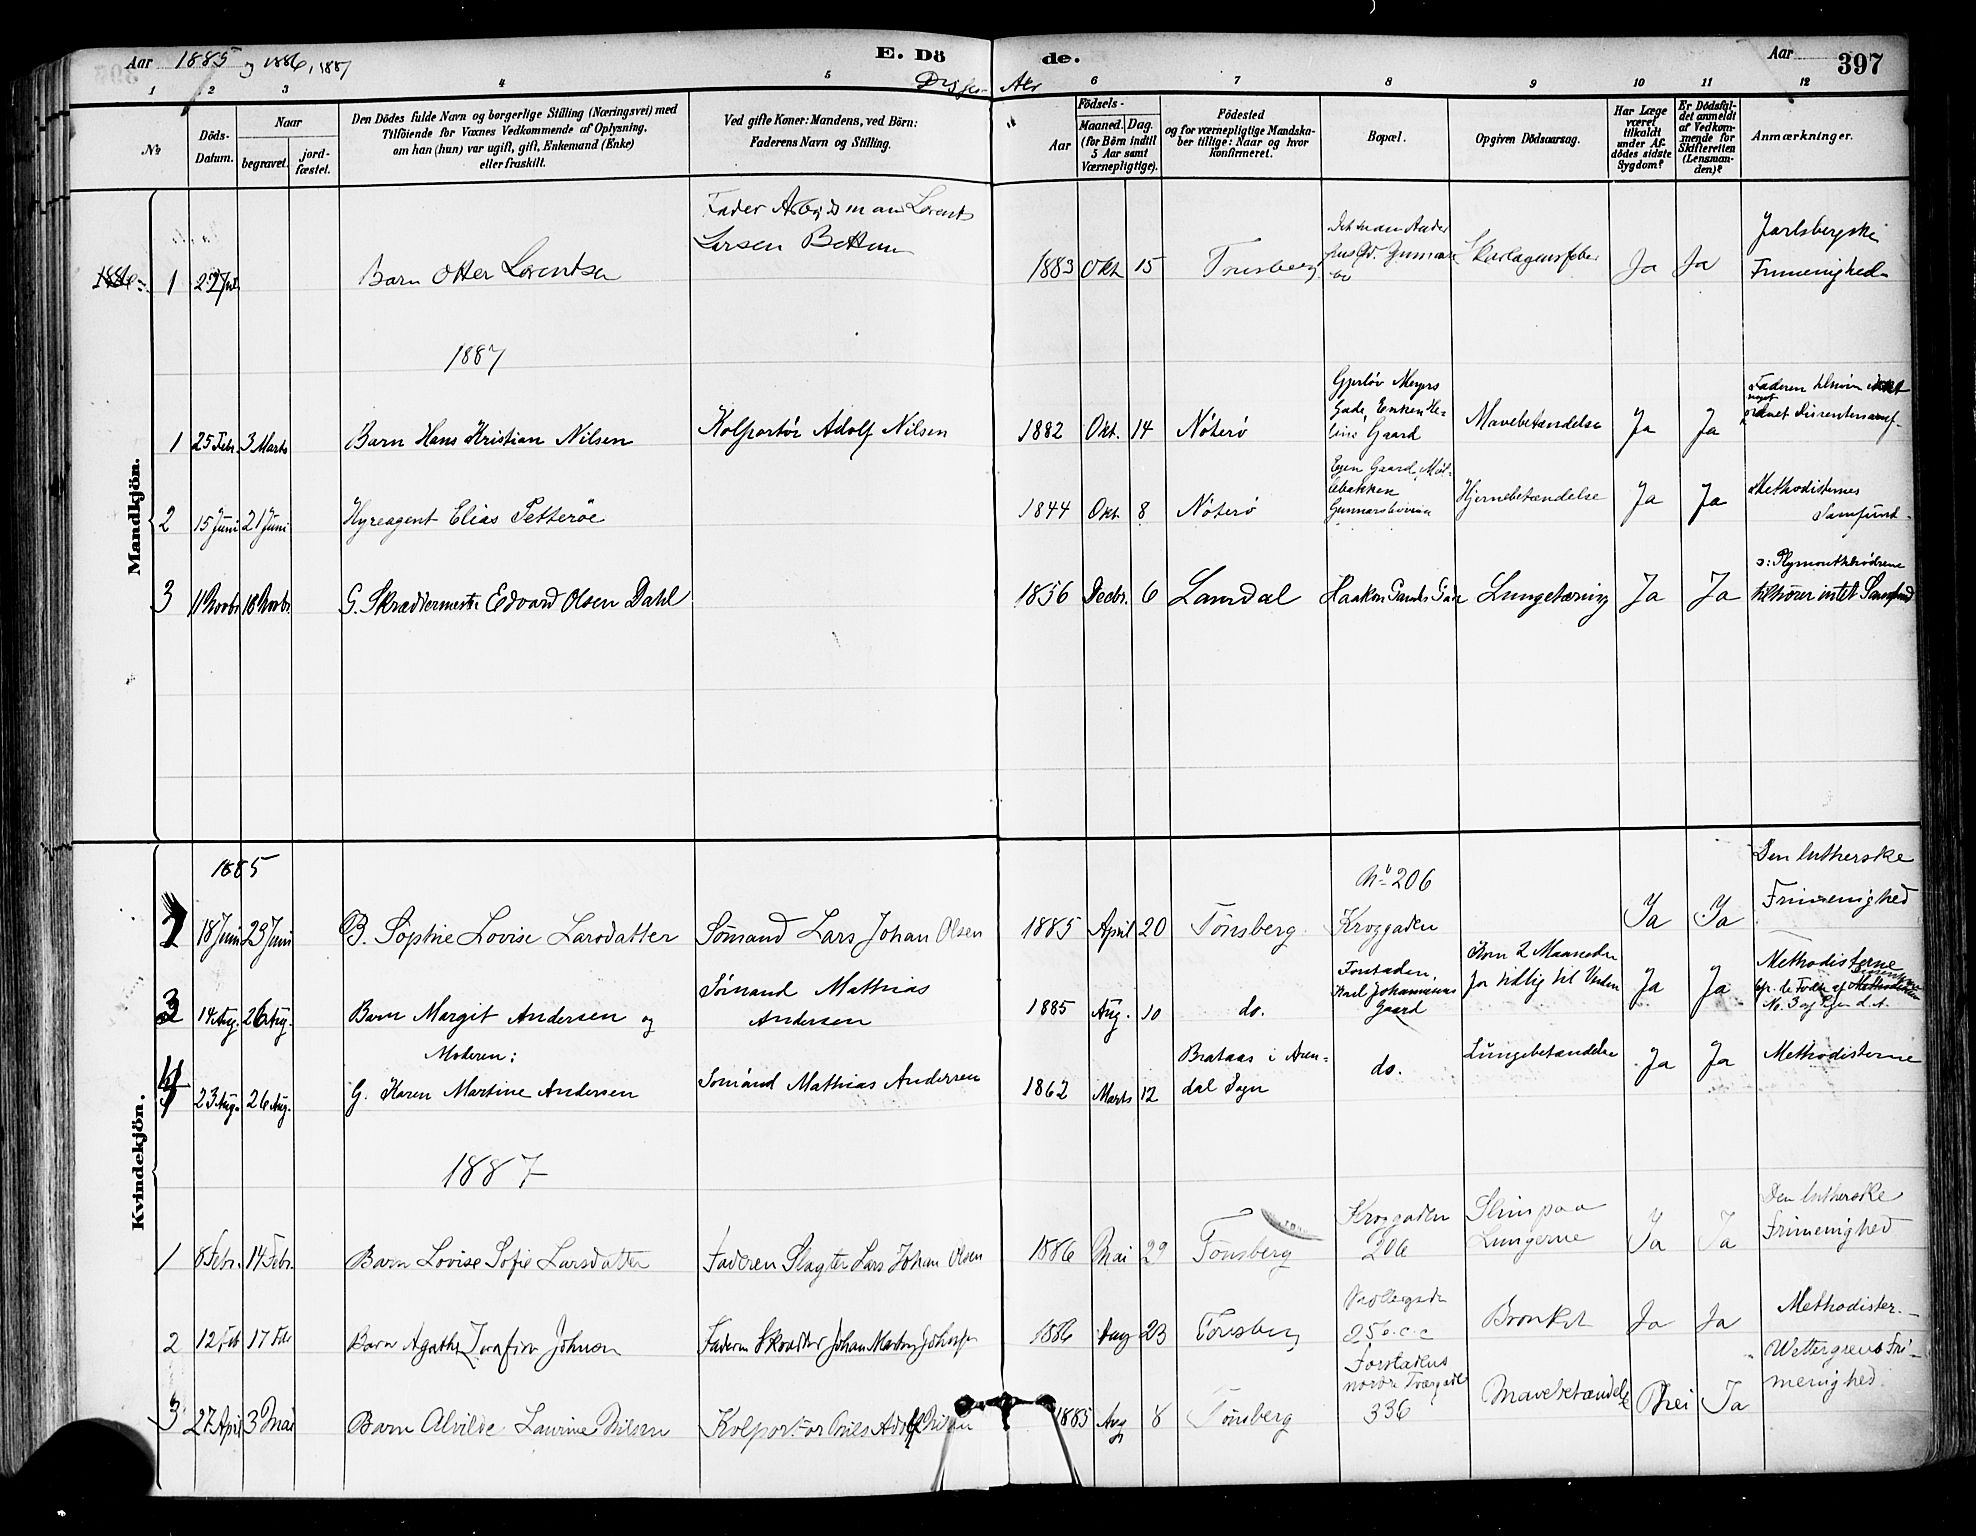 Aar 1885 og 1886, 1887
E. Dö
de.
Aar
397
1 2 3 4 5 6 7 8 9 10 11 12
No
Döds-
Datum.
Naar
begravet.
jord-
fæstet.
Den Dödes fulde Navn og borgerlige Stilling (Næringsvei) med
Tilföiende for Voxnes Vedkommende af Oplysning,
om han (hun) var ugift, gift, Enkemand (Enke)
eller fraskilt.
Ved gifte Koner: Mandens, ved Börn:
Faderens Navn og Stilling.
Födsels-
Aar
Maaned.
Dag.
(for Börn indtil
5 Aar samt
Værnepligtige).
Födested
og for værnepligtige Mandska-
ber tillige: Naar og hvor
konfirmeret.
Bopæl.
Opgiven Dödsaarsag.
Har Læge
været
tilkaldt
under Af-
dödes sidste
Sygdom?
Er Dödsfal-
det anmeldt
af Vedkom-
mende for
Skifteretten
(Lensman-
den)?
Anmærkninger.
Mandkjön.
1886
1
Barn Otter Lorentsen
Fader Arbeidsmand Lorents
Larsen Bettum
1883 Okt 15
Tønsberg
Skarlagensfeber
Ja Ja
Jarlsbergske
Frimenighed
1887
1 25 Febr. 3 Marts
Barn Hans Kristian Nilsen
Kolportör Adolf Nilsen
1882 Okt. 14
Nöterö
Gjerlöv Meyers
Gade, Enken He-
line Gaard
Mavebetændelse
Ja Ja
2 15 Juni 21 Juni
Hyreagent Elias Petteröe
1844 Okt 8
Nöterö
Egen Gaard, Möl-
lebakken
Hjernebetændelse
Ja Ja
Methodisternes
Samfund
3 11 Novbr 18 Novbr.
G. Skræddermestr. Edvard Olsen Dahl
1856 Decbr. 6
Haakon Gamles Gade
Lungetæring
Ja Ja
ɔ: Plymouthbrödrene
tilhörer intet Samfund
Kvindekjön.
1885
2 18 Juni 23 Juni
B. Sophie Lovise Larsdatter
Sömand Lars Johan Olsen
1885 April 20
Tönsberg.
No 206
Kroggaden
Ja Ja
Den lutherske
Frimenighed
3 14 Aug. 26 Aug.
Barn Margit Andersen og
Sömand Mathias
Andersen
1885 Aug. 10
do.
Forstaden,
Karl Johannesens
Gaard
Kom 2 Maaneder
for tidlig til Verden
Ja Ja
Methodisterne
4 23 Aug. 26 Aug.
Moderen:
G. Karen Martine Andersen
Sömand Mathias Andersen
1862 Marts 12
Brataas i Aren-
dal Sogn
do.
Lungebetændelse
Ja Ja
Methodisterne
1887
1 8 Febr. 14 Febr.
Barn Lovise Sofie Larsdatter
Faderen Slagter Lars Johan Olsen
1886 Mai 29
Tönsberg
Kroggaden
206
Slim paa
Lungerne
Ja Ja
Den lutherske
Frimenighed
2 12 Feb 17 Feb
Barn Agathe Josefine Johnsen
1886 Aug 23
Tönsberg
Bronkit
Ja Ja
Methodister.
3 27 April 3 Mai
Barn Alvilde Laurine Nilsen
Kolportör Nils Adolf Nilsen
1885 Aug 8
Tönsberg
Forstadens
nordre Tværgade
336
Mavebetændelse
Nei Ja
Wettergrens Fri-
menighed.